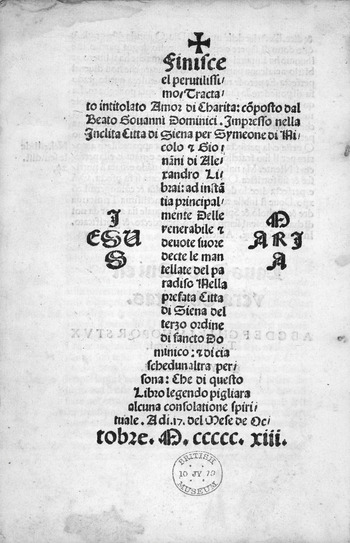 ✠
Finisce
el perutilissi/
mo/Tracta/
to intitolato Amor di Charita: cōposto dal
Beato Giouanni Dominici. Impresso nella
Inclita Citta di Siena per Symeone di Ni/
colo & Gio
nāni di Ale/
xandro Li/
brai: ad instā
tia principal/
mente Delle
venerabile &
deuote suore
decte le man
tellate del pa
radiso Nella
prefata Citta
di Siena del
terzo ordine
di sancto Do
minico: & di cia
schedunaltra per/
sona: Che di questo
Libro legendo pigliara
alcuna consolatione spiri/
tuale. A di. 17. del Mese de Oc/
tobre. M. ccccc. xiii.
I
ESU
S
M
ARI
A
BRITISH
10 JY 19
MUSEUM